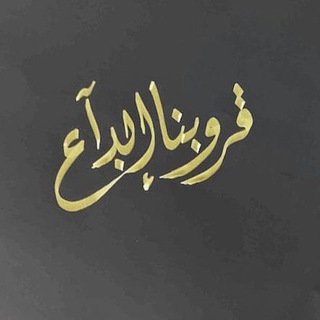 قروبنا إبدآع